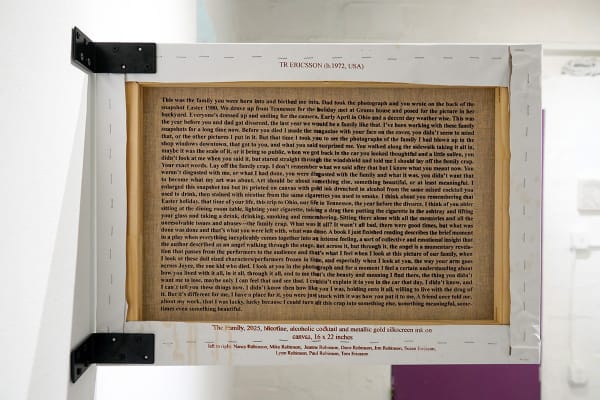 TR ERICSSON (b.1972, USA)
This was the family you were born into and birthed me into. Dad took the photograph and you wrote on the back of the
snapshot Easter 1980. We drove up from Tennessee for the holiday met at Grams house and posed for the picture in her
backyard. Everyone's dressed up and smiling for the camera. Early April in Ohio and a decent day weather wise. This was
the year before you and dad got divorced, the last year we would be a family like that. I've been working with these family
snapshots for a long time now. Before you died I made the magazine with your face on the cover, you didn't seem to mind
that, or the other pictures I put in. But that time I took you to see the photographs of the family I had blown up in the
shop windows downtown, that got to you, and what you said surprised me. You walked along the sidewalk taking it all in,
maybe it was the scale of it, or it being so public, when we got back in the car you looked thoughtful and a little sullen, you
didn't look at me when you said it, but stared straight through the windshield and told me I should lay off the family crap.
Your exact words. Lay off the family crap. I don't remember what we said after that but I know what you meant now. You
weren't disgusted with me, or what I had done, you were disgusted with the family and what it was, you didn't want that
to become what my art was about. Art should be about something else, something beautiful, or at least meaningful. I
enlarged this snapshot too but its printed on canvas with gold ink drenched in alcohol from the same mixed cocktail you
used to drink, then stained with nicotine from the same cigarettes you used to smoke. I think about you remembering that
Easter holiday, that time of your life, this trip to Ohio, our life in Tennessee, the year before the divorce. I think of you alone
sitting at the dining room table, lighting your cigarette, taking a drag then putting the cigarette in the ashtray and lifting
your glass and taking a drink, drinking, smoking and remembering. Sitting there alone with all the memories and all the
unresolvable issues and abuses—the family crap. What was it all? It wasn't all bad, there were good times, but what was
done was done and that's what you were left with, what was done. A book I just finished reading describes the brief moment
in a play when everything inexplicably comes together into an intense feeling, a sort of collective and emotional insight that
the author described as an angel walking through the stage, not across it, but through it, the angel is a momentary revela-
tion that passes from the performers to the audience and that's what I feel when I look at this picture of our family, when
I look at these doll sized characters/performers frozen in time, and especially when I look at you, the way your arm goes
across Joyce, the one kid who died. I look at you in the photograph and for a moment I feel a certain understanding about
how you lived with it all, in it all, through it all, and to me that's the beauty and meaning I find there, the thing you didn't
want me to lose, maybe only I can feel that and see that. I couldn't explain it to you in the car that day, I didn't know, and
I can't tell you these things now. I didn't know then how like you I was, holding onto it all, willing to live with the drag of
it. But it's different for me, I have a place for it, you were just stuck with it was how you put it to me. A friend once told me,
about my work, that I was lucky, lucky because I could turn all this crap into something else, something meaningful, some-
times even something beautiful.
The Family, 2025, Nicotine, alcoholic cocktail and metallic gold silkscreen ink on
canvas, 16 x 22 inches
left to right: Nancy Robinson, Mike Robinson,